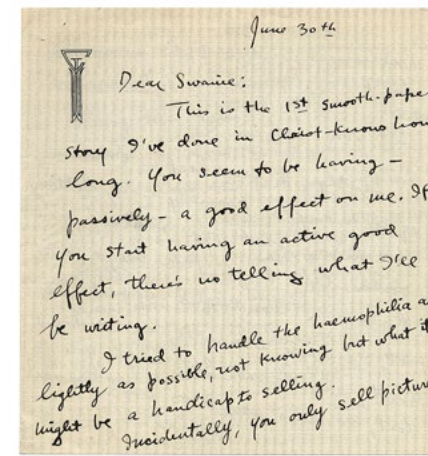 June 30th
Dear Swanie:
This is the 1st smooth-pape
story I've done in Christ-knows how
long. You seem to be having –
passively – a good effect on me. If
you start having an active good
effect, there's no telling what I'll
be writing.
I tried to handle the haemophilia a
lightly as possible, not knowing but what it
might be a handicap to selling.
Incidentally, you only sell pictur